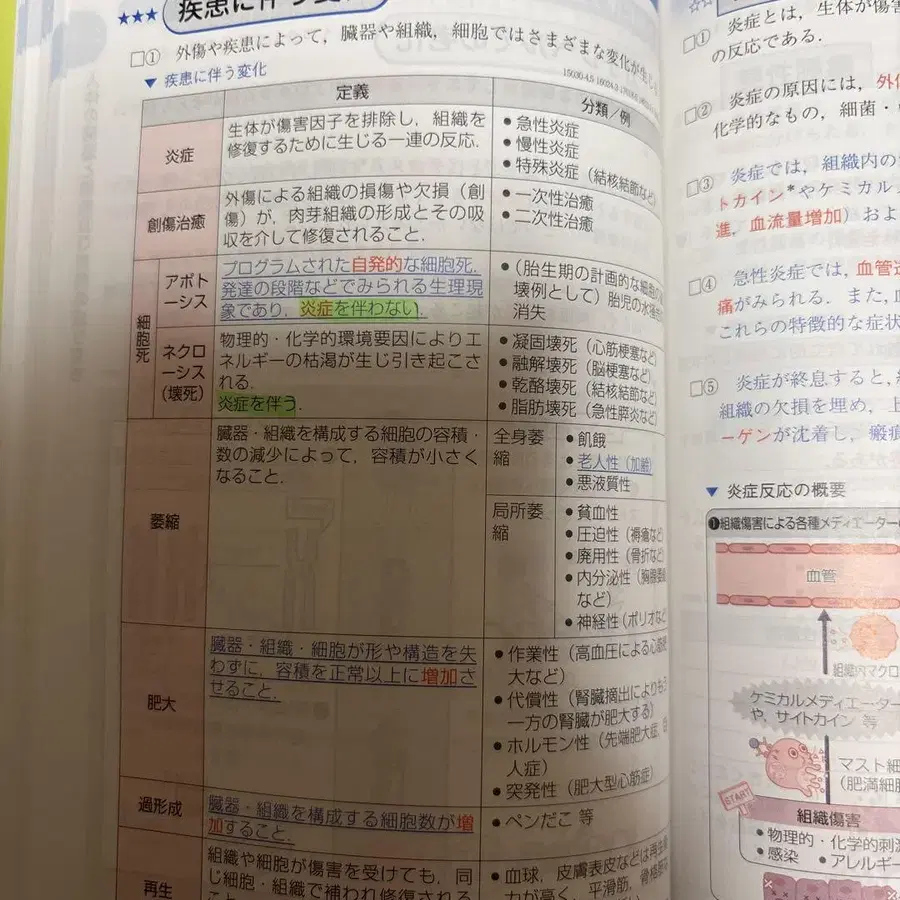 ★★★ 疾患に伴う変化
□① 外傷や疾患によって，臓器や組織，細胞ではさまざまな変化が生じ
▼ 疾患に伴う変化
定義
分類／例
炎症
生体が傷害因子を排除し，組織を
修復するために生じる一連の反応．
● 急性炎症
● 慢性炎症
● 特殊炎症（結核結節など）
創傷治癒
外傷による組織の損傷や欠損（創
傷）が，肉芽組織の形成とその吸
収を介して修復されること．
● 一次性治癒
● 二次性治癒
細胞死
アポト
ーシス
プログラムされた自発的な細胞死．
発達の段階などでみられる生理現
象であり，炎症を伴わない．
● （胎生期の計画的な細胞の
壊例として）胎児の
消失
ネクロ
ーシス
（壊死）
物理的・化学的環境要因によりエ
ネルギーの枯渇が生じ引き起こさ
れる．
炎症を伴う．
● 凝固壊死（心筋梗塞など）
● 融解壊死（脳梗塞など）
● 乾酪壊死（結核結節など）
● 脂肪壊死（急性膵炎など）
萎縮
臓器・組織を構成する細胞の容積・
数の減少によって，容積が小さく
なること．
全身萎
縮
● 飢餓
● 老人性（加齢）
● 悪液質性
局所萎
縮
● 貧血性
● 圧迫性（褥瘡など）
● 廃用性（骨折など）
● 内分泌性（胸腺萎縮
など）
● 神経性（ポリオなど
肥大
臓器・組織・細胞が形や構造を失
わずに，容積を正常以上に増加さ
せること．
● 作業性（高血圧による心筋肥
大など）
● 代償性（腎臓摘出によりもう
一方の腎臓が肥大する）
● ホルモン性（先端肥大症，
人症）
● 突発性（肥大型心筋症）
過形成
臓器・組織を構成する細胞数が増
加すること．
● ペンだこ 等
再生
組織や細胞が傷害を受けても，同
じ細胞・組織で補われ修復される
● 血球，皮膚表皮などは再生
力が高く，平滑筋，骨格筋
□① 炎症とは，生体が傷害
の反応である．
□② 炎症の原因には，外
化学的なもの，細菌・
□③ 炎症では，組織内の
トカイン*やケミカル
進，血流量増加）およ
□④ 急性炎症では，血管
痛がみられる．また，
これらの特徴的な症状
□⑤ 炎症が終息すると，
組織の欠損を埋め，上
ーゲンが沈着し，瘢痕
▼ 炎症反応の概要
❶組織傷害による各種メディエーターの
血管
組織内マクロ
ケミカルメディエーター
や，サイトカイン 等
マスト細
（肥満細胞
START
組織傷害
● 物理的・化学的刺
● 感染 ● アレルギー